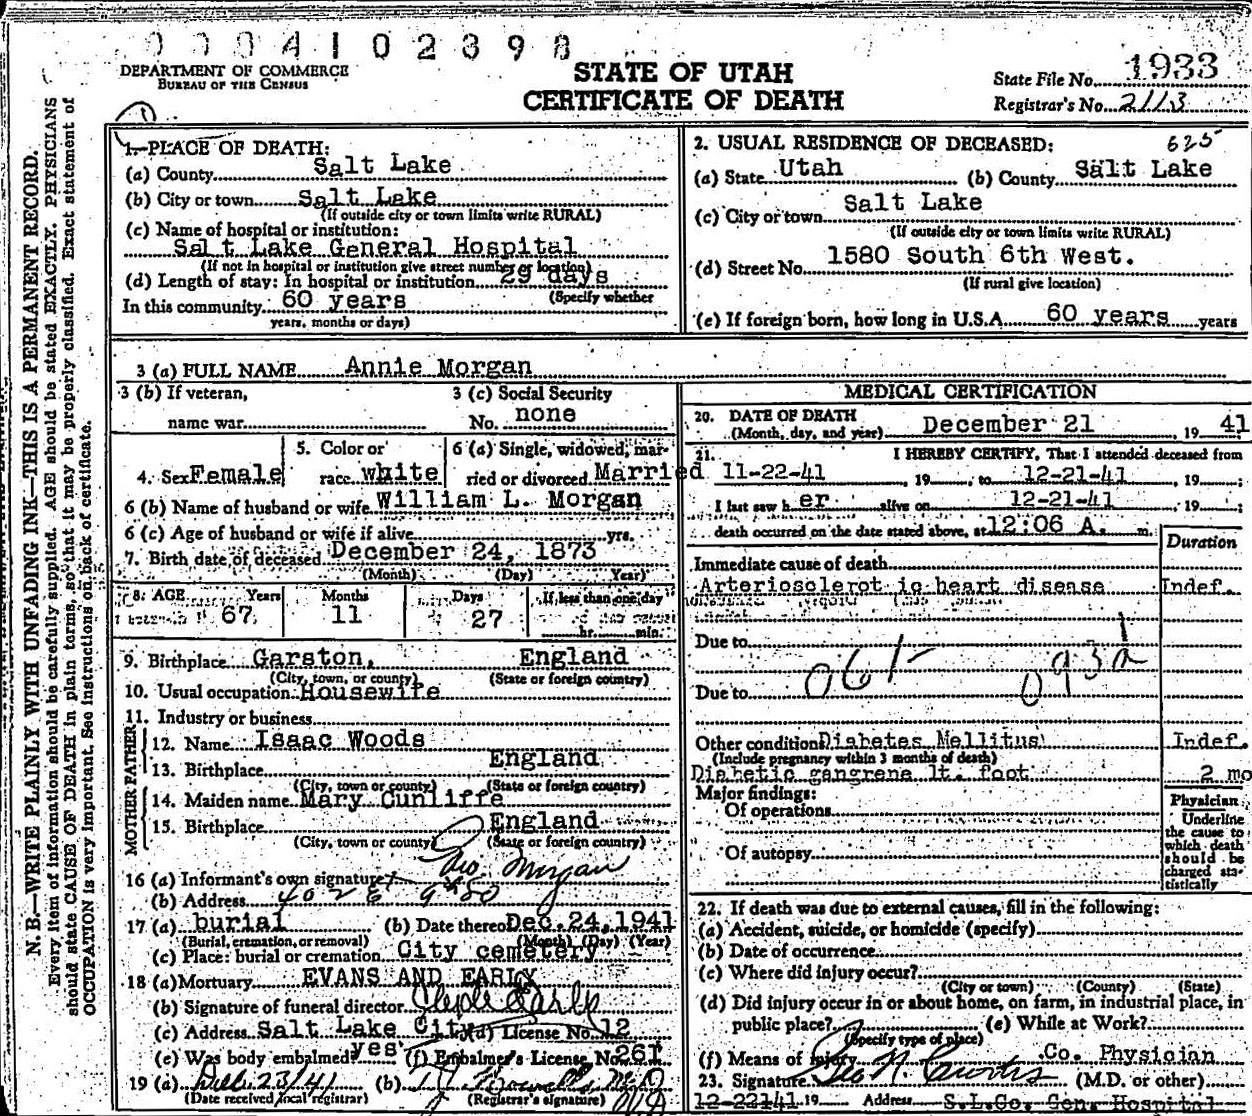 0004102398
DEPARTMENT OF COMMERCE
BUREAU OF THE CENSUS
STATE OF UTAH
CERTIFICATE OF DEATH
State File No. 1933
Registrar's No. 2113
N. B.—WRITE PLAINLY WITH UNFADING INK—THIS IS A PERMANENT RECORD.
Every item of information should be carefully supplied. AGE should be stated EXACTLY. PHYSICIANS
should state CAUSE OF DEATH in plain terms, so that it may be properly classified. Exact statement of
OCCUPATION is very important. See instructions on back of certificate.
1. PLACE OF DEATH:
(a) County Salt Lake
(b) City or town Salt Lake
(If outside city or town limits write RURAL)
(c) Name of hospital or institution:
Salt Lake General Hospital
(If not in hospital or institution give street number or location)
(d) Length of stay: In hospital or institution 29 days
(Specify whether
In this community 60 years
years, months or days)
2. USUAL RESIDENCE OF DECEASED: 625
(a) State Utah (b) County Salt Lake
(c) City or town Salt Lake
(If outside city or town limits write RURAL)
(d) Street No. 1580 South 6th West.
(If rural give location)
(e) If foreign born, how long in U.S.A. 60 years years
3 (a) FULL NAME Annie Morgan
3 (b) If veteran,
name war
3 (c) Social Security
No. none
4. Sex Female
5. Color or
race white
6 (a) Single, widowed, mar-
ried or divorced Married
6 (b) Name of husband or wife William L. Morgan
6 (c) Age of husband or wife if alive yrs.
7. Birth date of deceased December 24, 1873
(Month) (Day) Year)
8. AGE Years Months Days If less than one day
67 11 27
hr. min.
9. Birthplace Garston, England
(City, town, or county) (State or foreign country)
10. Usual occupation Housewife
11. Industry or business
FATHER
12. Name Isaac Woods
13. Birthplace England
(City, town or county) (State or foreign country)
MOTHER
14. Maiden name Mary Cunliffe
15. Birthplace England
(City, town or county) (State or foreign country)
16 (a) Informant's own signature Geo. Morgan
(b) Address 402 E 9th So
17 (a) burial (b) Date thereof Dec. 24, 1941
(Burial, cremation, or removal) (Month) (Day) (Year)
(c) Place: burial or cremation City cemetery
18 (a) Mortuary EVANS AND EARLY
(b) Signature of funeral director Clyde Early
(c) Address Salt Lake City (d) License No. 12
(e) Was body embalmed? yes (f) Embalmer's License No. 261
19 (a) Dec. 23/41 (b)
(Date received local registrar) (Registrar's signature)
MEDICAL CERTIFICATION
20. DATE OF DEATH
(Month, day, and year) December 21, 19 41
21. I HEREBY CERTIFY, That I attended deceased from
11-22-41, 19 , to 12-21-41, 19 ;
I last saw h er alive on 12-21-41, 19 ;
death occurred on the date stated above, at 12:06 A. m.
Duration
Immediate cause of death
Arteriosclerotic heart disease Indef.
Due to
061- 093d
Due to
Other condition Diabetes Mellitus Indef.
(Include pregnancy within 3 months of death)
Diabetic gangrene lt. foot 2 mo
Major findings:
Of operations
Of autopsy
Physician
Underline
the cause to
which death
should be
charged sta-
tistically
22. If death was due to external causes, fill in the following:
(a) Accident, suicide, or homicide (specify)
(b) Date of occurrence
(c) Where did injury occur?
(City or town) (County) (State)
(d) Did injury occur in or about home, on farm, in industrial place, in
public place? (e) While at Work?
(Specify type of place)
(f) Means of injury Co. Physician
23. Signature Geo N. Curtis (M.D. or other)
12-22141 19 Address S.L.Co. Gen. Hospital